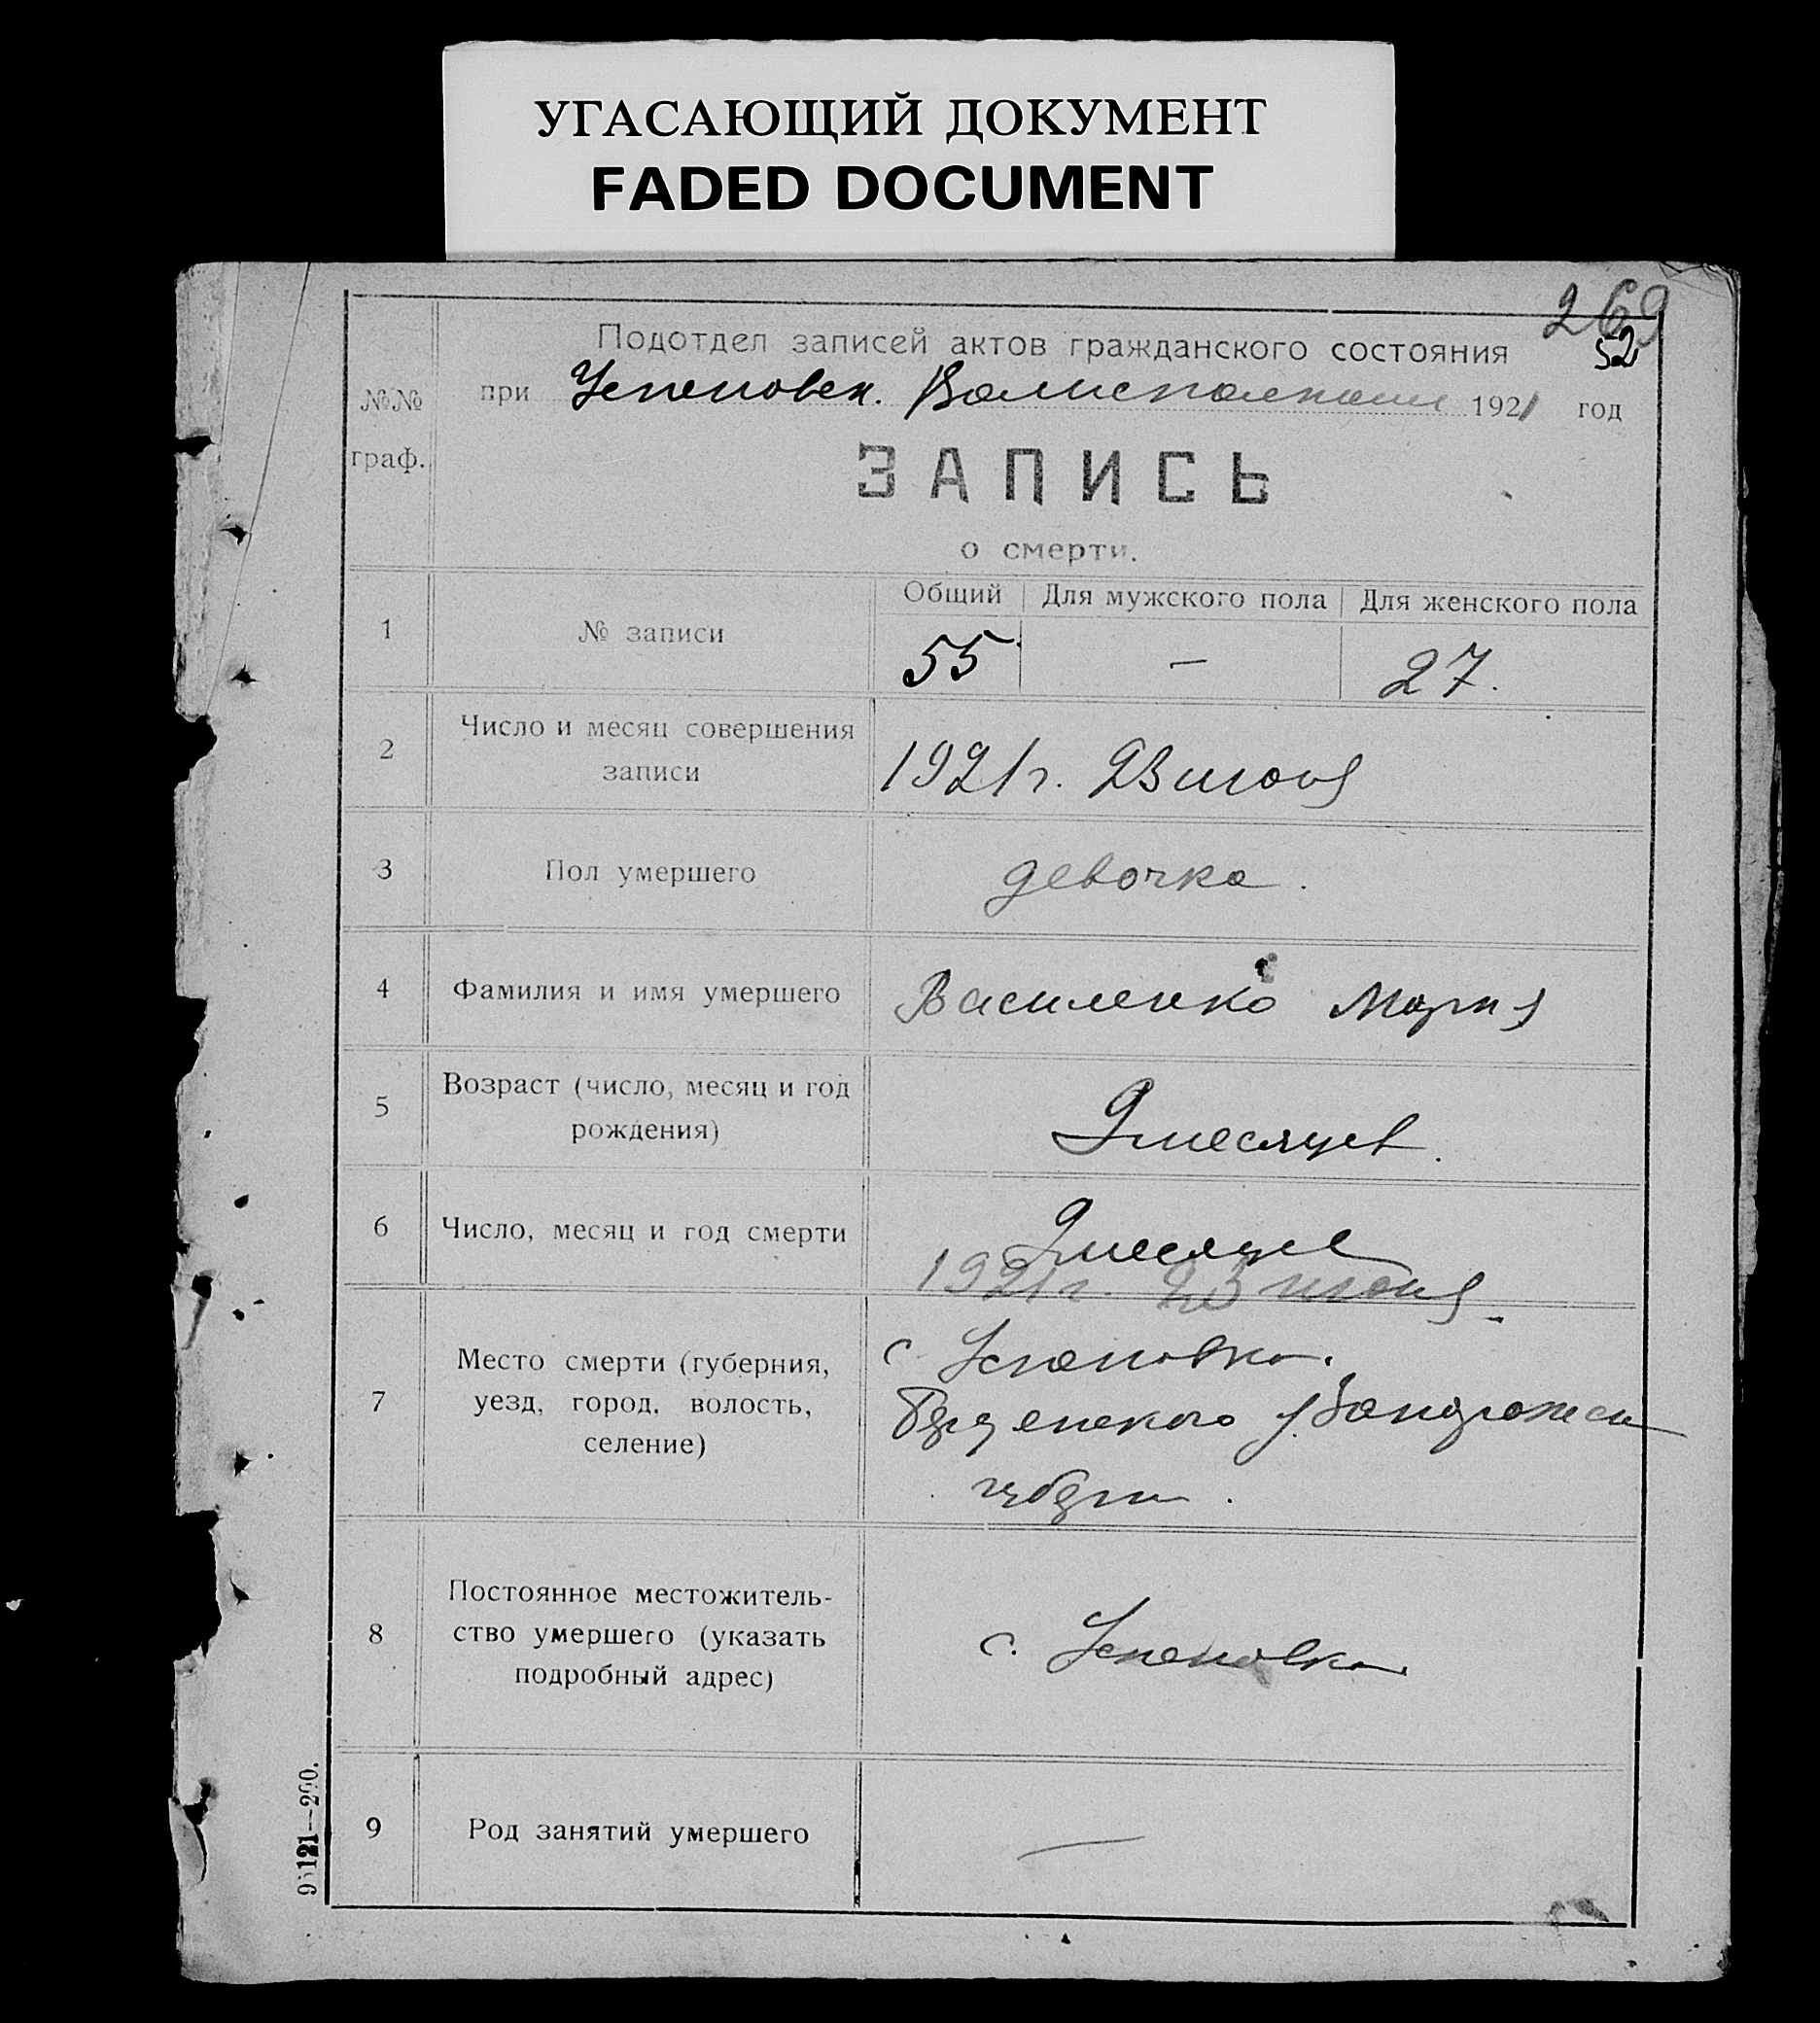 УГАСАЮЩИЙ ДОКУМЕНТ
FADED DOCUMENT
269
52
Подотдел записей актов гражданского состояния
№№ граф.
при Успеновск. Волисполкоме 1921 год
ЗАПИСЬ
о смерти.
Общий Для мужского пола Для женского пола
1 № записи 55 — 27.
2 Число и месяц совершения
записи 1921 г. 23 июня
3 Пол умершего девочка.
4 Фамилия и имя умершего Василенко Мария
5 Возраст (число, месяц и год
рождения) 9 месяцев.
6 Число, месяц и год смерти 9 месяцев
1921 г. 23 июня
7 Место смерти (губерния,
уезд, город, волость,
селение)
с. Успеновка.
у. Запорожск
губерн.
8 Постоянное местожитель-
ство умершего (указать
подробный адрес)
с. Успеновка.
9 Род занятий умершего —